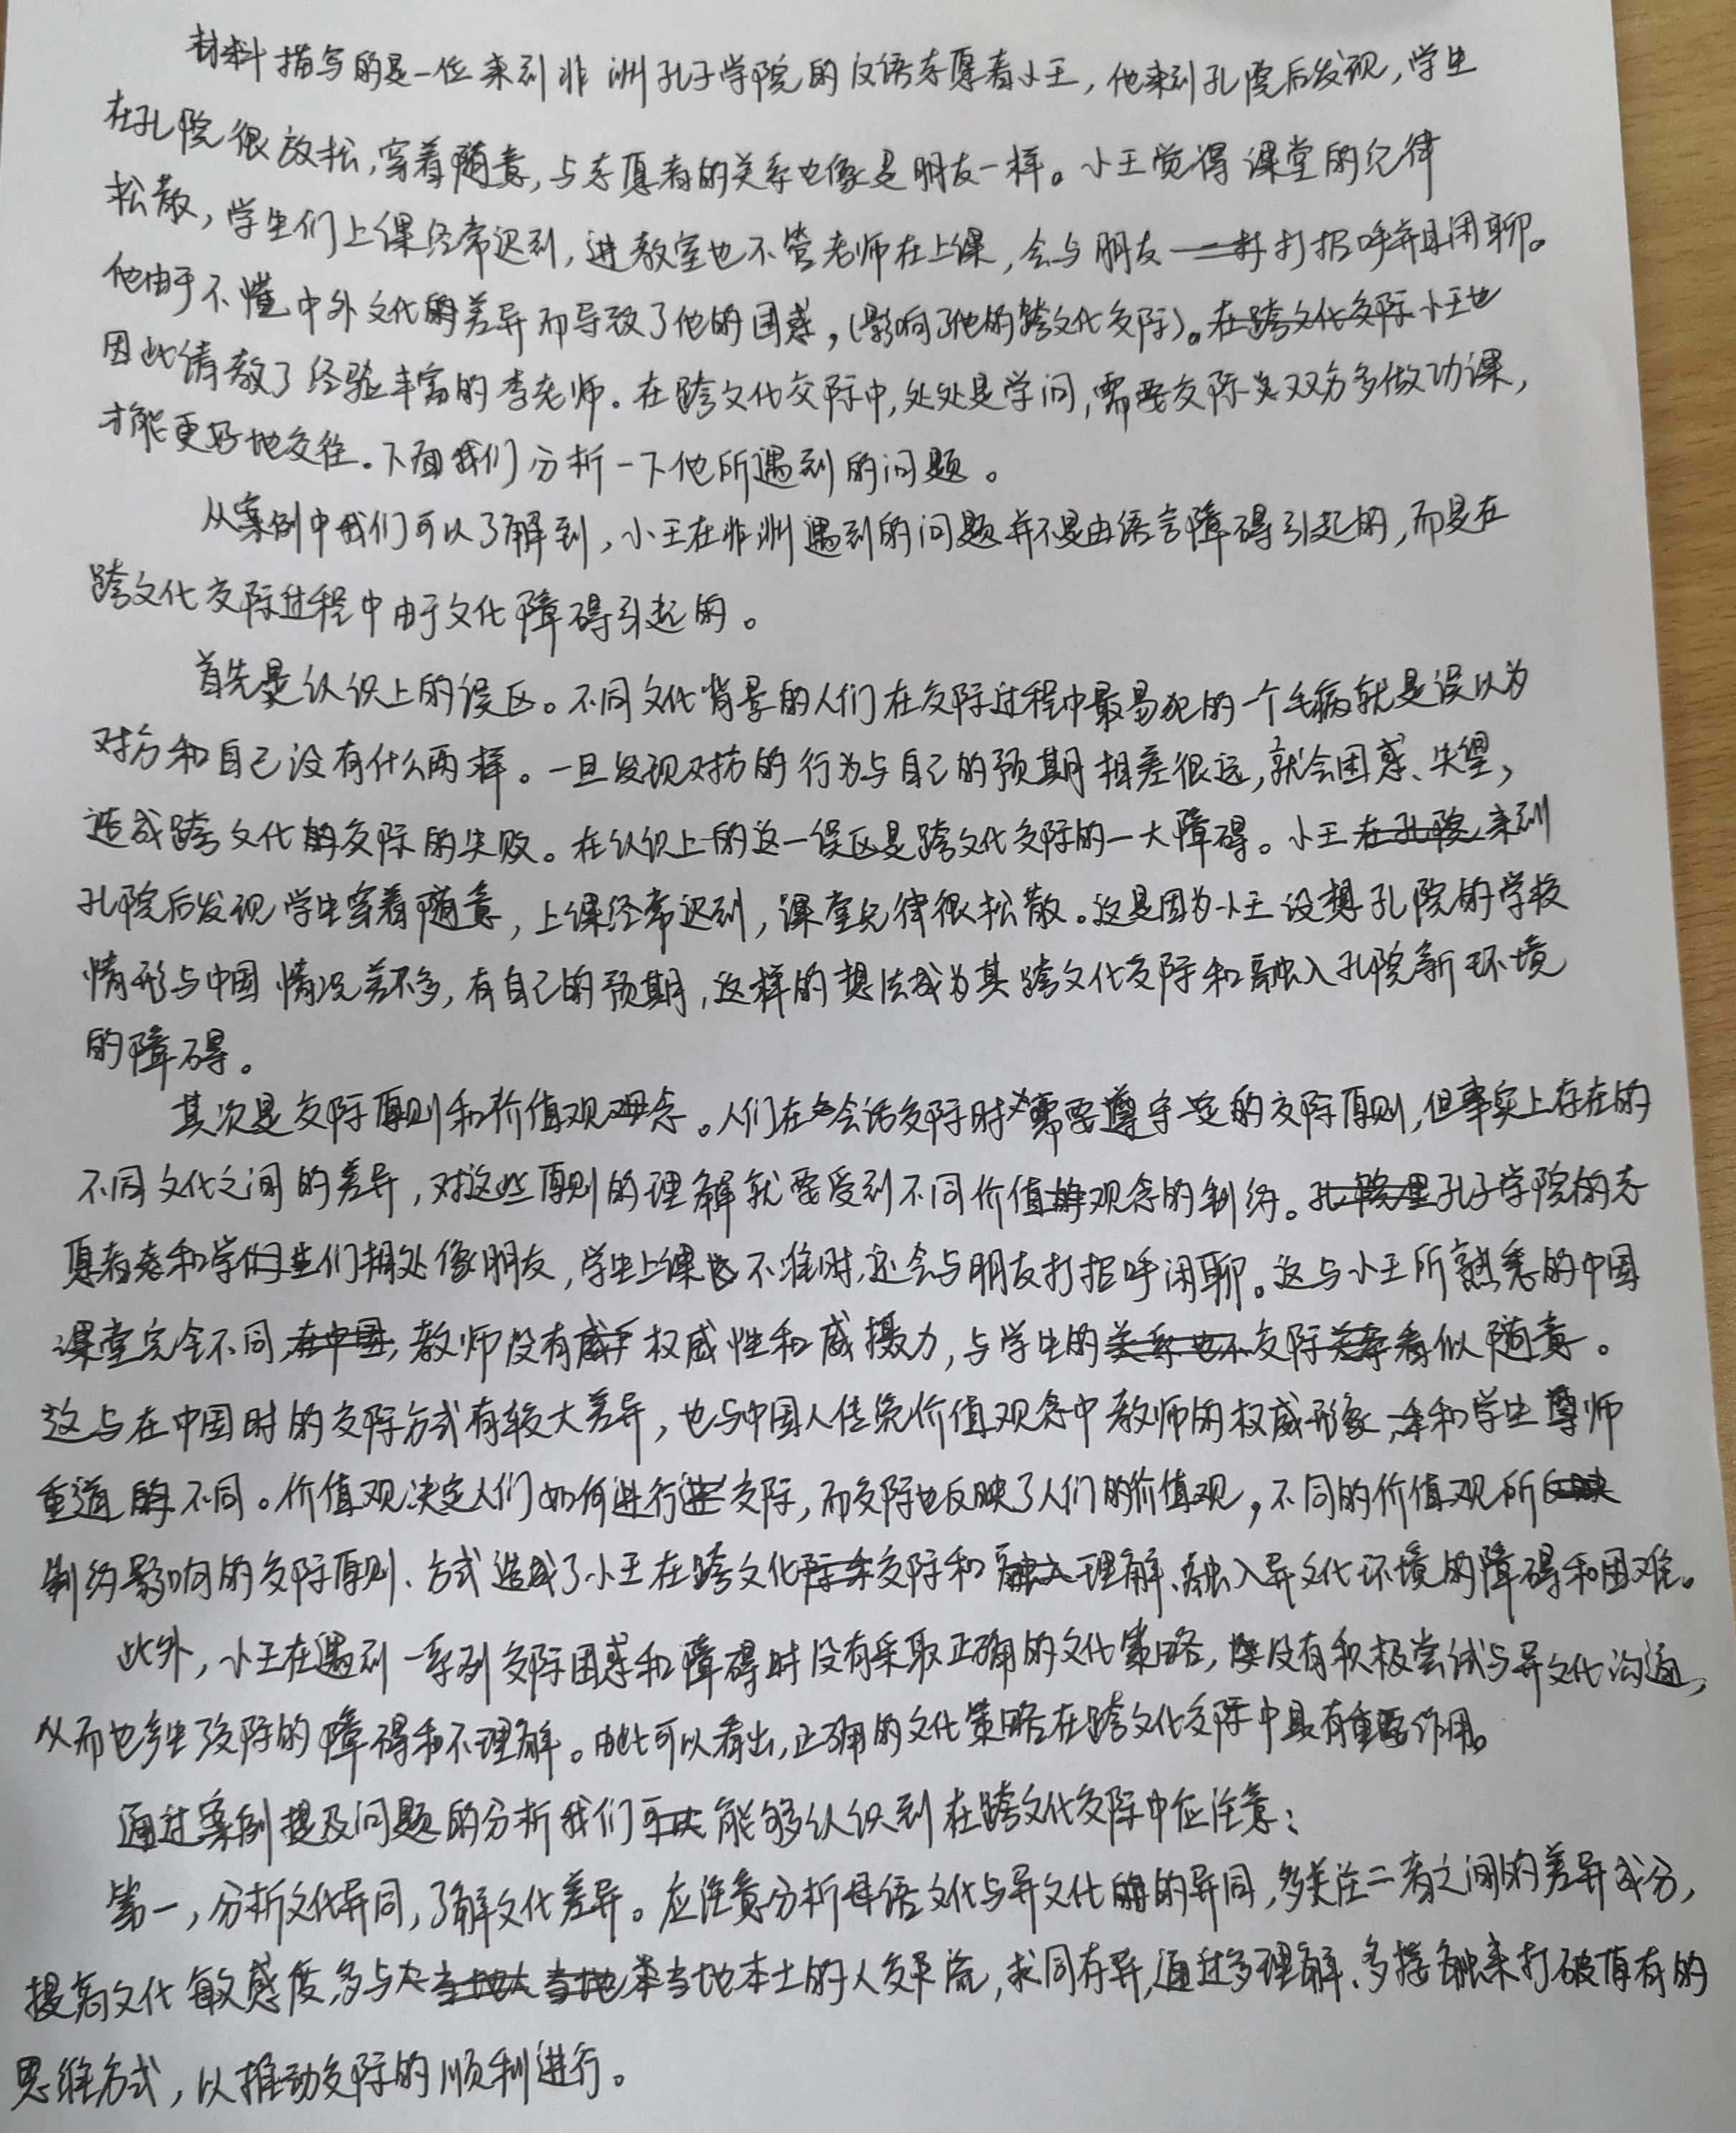 材料描写的是一位来到非洲孔子学院的汉语志愿者小王，他来到孔院后发现，学生
在孔院很放松，穿着随意，与志愿者的关系也像是朋友一样。小王觉得课堂的纪律
松散，学生们上课经常迟到，进教室也不管老师在上课，会与朋友打招呼并且闲聊。
他由于不懂中外文化的差异而导致了他的困惑，(影响了他的跨文化交际)。小王也
因此请教了经验丰富的李老师。在跨文化交际中，处处是学问，需要交际双方多做功课，
才能更好地交往。下面我们分析一下他所遇到的问题。
从案例中我们可以了解到，小王在非洲遇到的问题并不是由语言障碍引起的，而是在
跨文化交际过程中由于文化障碍引起的。
首先是认识上的误区。不同文化背景的人们在交际过程中最易犯的一个毛病就是误以为
对方和自己没有什么两样。一旦发现对方的行为与自己的预期相差很远，就会困惑、失望，
造成跨文化交际的失败。在认识上的这一误区是跨文化交际的一大障碍。小王来到
孔院后发现学生穿着随意，上课经常迟到，课堂纪律很松散。这是因为小王设想孔院的学校
情形与中国情况差不多，有自己的预期，这样的想法成为其跨文化交际和融入孔院新环境
的障碍。
其次是交际原则和价值观念。人们在会话交际时需要遵守一定的交际原则，但事实上存在的
不同文化之间的差异，对这些原则的理解就要受到不同价值观念的制约。孔子学院的志
愿者和学生们相处像朋友，学生上课不准时，还会与朋友打招呼闲聊。这与小王所熟悉的中国
课堂完全不同，教师没有权威性和威摄力，与学生的交际看似随意。
这与在中国时的交际方式有较大差异，也与中国人传统价值观念中教师的权威形象，和学生尊师
重道不同。价值观决定人们如何进行交际，而交际也反映了人们的价值观，不同的价值观所
制约影响的交际原则、方式造成了小王在跨文化交际和理解、融入异文化环境的障碍和困难。
此外，小王在遇到一系列交际困惑和障碍时没有采取正确的文化策略，没有积极尝试与异文化沟通，
从而也产生了交际的障碍和不理解。由此可以看出，正确的文化策略在跨文化交际中具有重要作用。
通过案例提及问题的分析我们能够认识到在跨文化交际中应注意：
第一，分析文化异同，了解文化差异。应注意分析母语文化与异文化的异同，多关注二者之间的差异成分，
提高文化敏感度，多与当地本土的人交流，求同存异，通过多理解、多接触来打破固有的
思维方式，以推动交际的顺利进行。